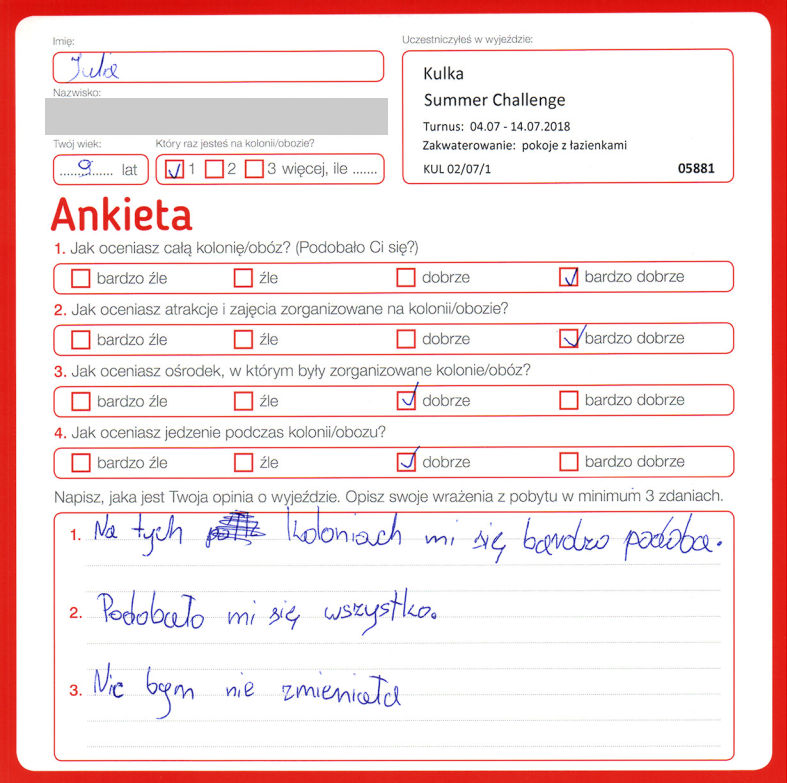 Imię:
Julia
Uczestniczyłeś w wyjeździe:
Kulka
Summer Challenge
Turnus: 04.07 - 14.07.2018
Zakwaterowanie: pokoje z łazienkami
KUL 02/07/1 05881
Nazwisko:
Twój wiek:
9 lat
Który raz jesteś na kolonii/obozie?
1 2 3 więcej, ile .......
Ankieta
1. Jak oceniasz całą kolonię/obóz? (Podobało Ci się?)
bardzo źle źle dobrze bardzo dobrze
2. Jak oceniasz atrakcje i zajęcia zorganizowane na kolonii/obozie?
bardzo źle źle dobrze bardzo dobrze
3. Jak oceniasz ośrodek, w którym były zorganizowane kolonie/obóz?
bardzo źle źle dobrze bardzo dobrze
4. Jak oceniasz jedzenie podczas kolonii/obozu?
bardzo źle źle dobrze bardzo dobrze
Napisz, jaka jest Twoja opinia o wyjeździe. Opisz swoje wrażenia z pobytu w minimum 3 zdaniach.
1. Na tych koloniach mi się bardzo podoba.
2. Podobało mi się wszystko.
3. Nic bym nie zmieniała